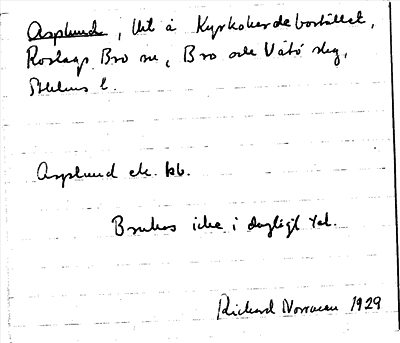 Asplund, lht å Kyrkoherdebostället,
Roslags Bro sn, Bro och Vätö slg,
Sthlms l.
Asplund ek. kb.
Brukas icke i dagligt tal.
Richard Norrman 1929